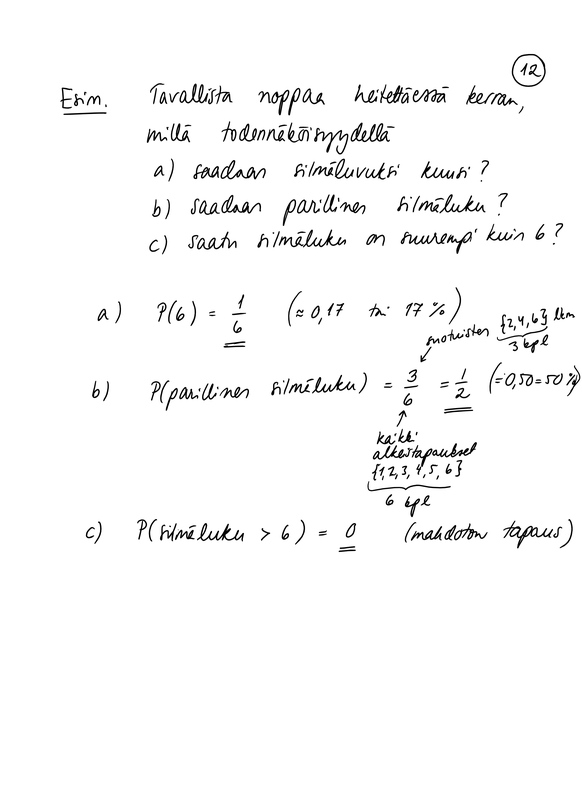 12
Esim. Tavallista noppaa heitettäessä kerran,
millä todennäköisyydellä
a) saadaan silmäluvuksi kuusi?
b) saadaan parillinen silmäluku?
c) saatu silmäluku on suurempi kuin 6?
a) P(6) = 1/6 (≈ 0,17 tai 17 %)
suotuisten {2,4,6} lkm
3 kpl
b) P(parillinen silmäluku) = 3/6 = 1/2 (=0,50=50 %)
kaikki
alkeistapaukset
{1,2,3,4,5,6}
6 kpl
c) P(silmäluku > 6) = 0 (mahdoton tapaus)